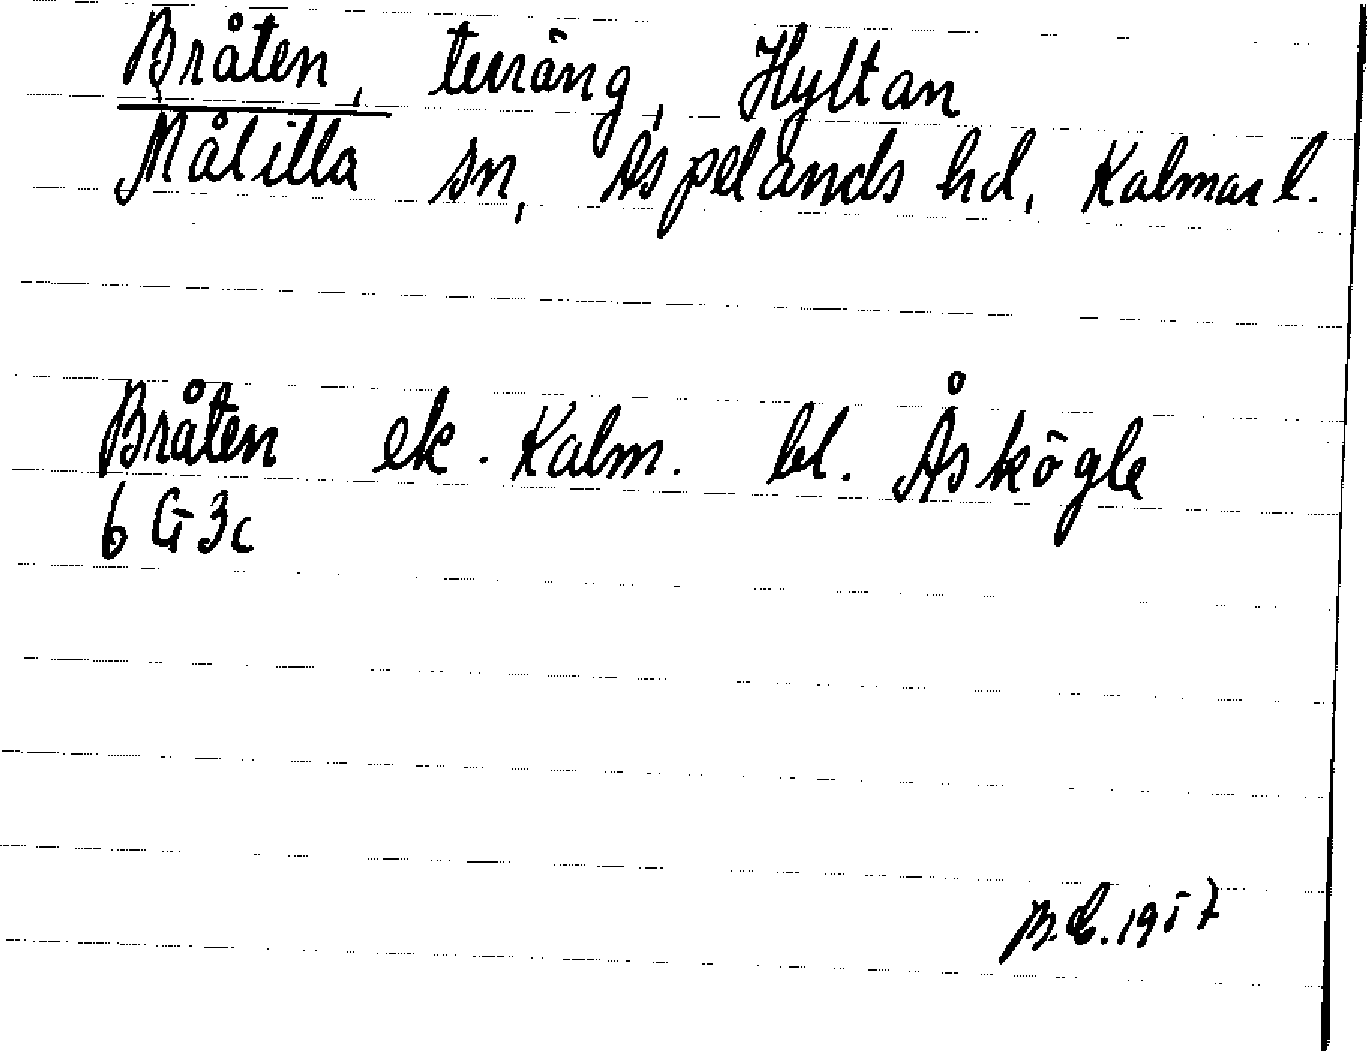 Bråten, terräng, Hyltan
Målilla sn, Aspelands hd, Kalmar l.
Bråten ek. Kalm. bl. Åskögle
6 G 3c
B.E. 1957